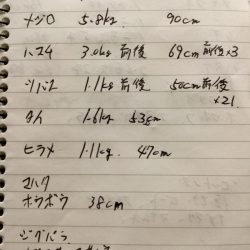 メジロ 5.8kg 90cm
ハマチ 3.0kg 前後 69cm 前後×3
ツバス 1.1kg 前後 50cm前後×21
タイ 1.6kg 53cm
ヒラメ 1.1kg. 47cm
コハク
ホウボウ 38cm
ジグパラ